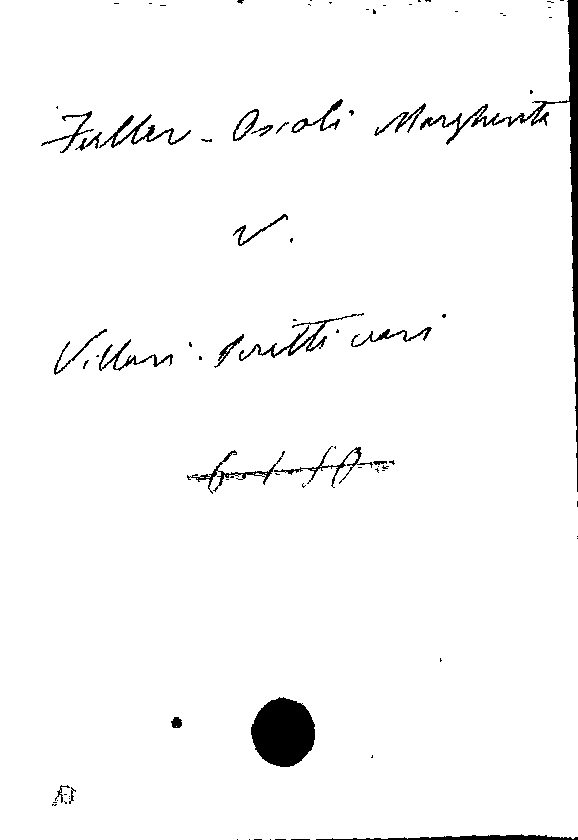 Fuller - Ossoli Margherita
V.
Villari. Scritti vari